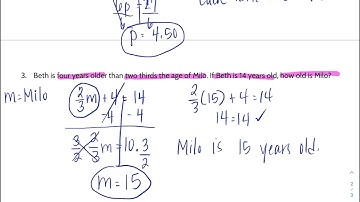 p = 4.50
3. Beth is four years older than two thirds the age of Milo. If Beth is 14 years old, how old is Milo?
m=Milo
2/3 m + 4 = 14
-4 -4
3/2 · 2/3 m = 10 · 3/2
m = 15
2/3 (15) + 4 = 14
14 = 14 ✓
Milo is 15 years old.